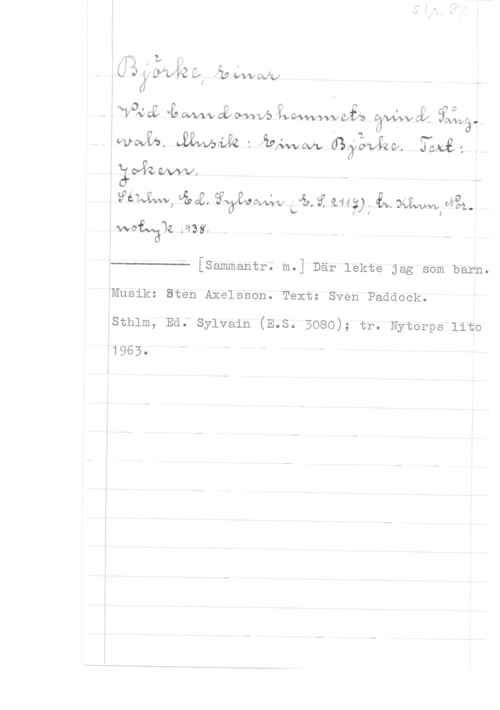 Björke, Einar
Vid barndomshemmets grind. Sång-
vals. Musik: Einar Björke. Text:
Jokern.
Sthlm, Ed. Sylvain (E.S. 2117); tr. Khvn, Nor-
notryk 1938.
[Sammantr. m.] Där lekte jag som barn.
Musik: Sten Axelsson. Text: Sven Paddock.
Sthlm, Ed. Sylvain (E.S. 3080); tr. Nytorps lito
1963.